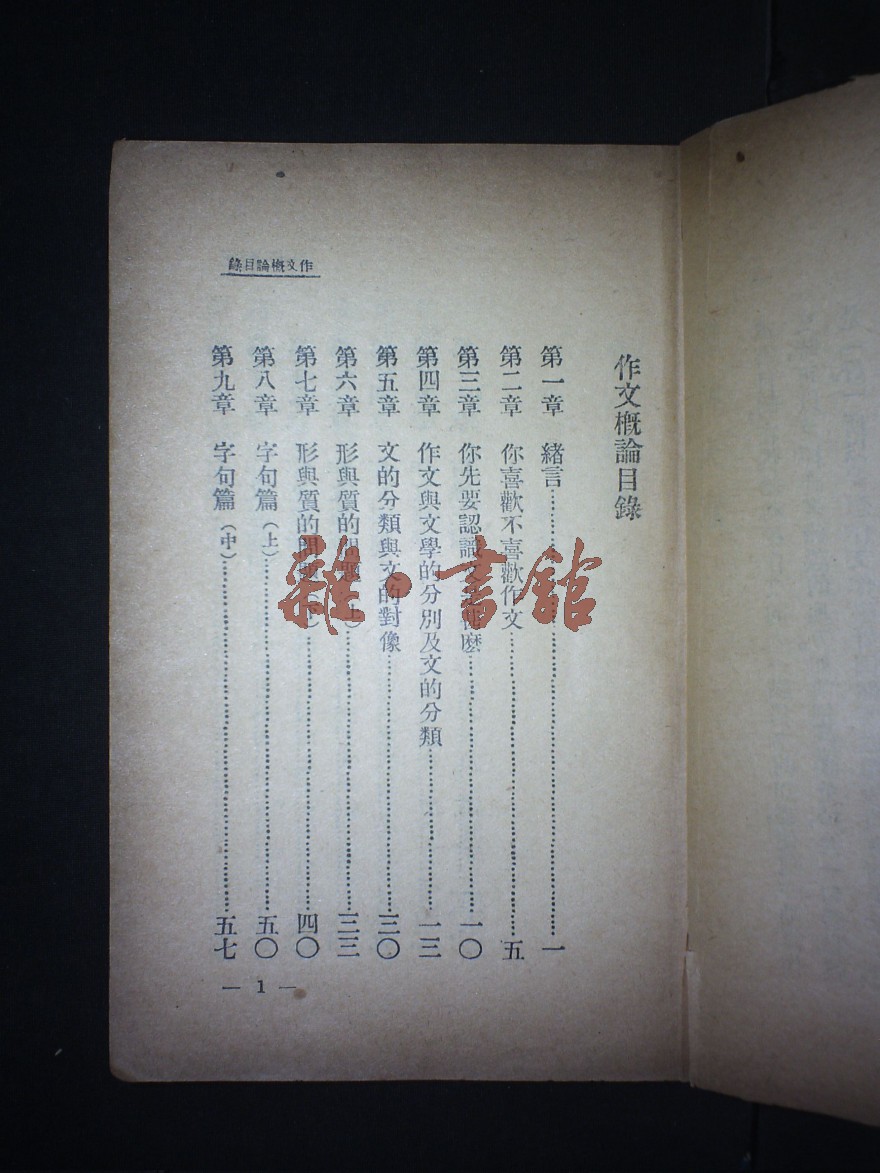 作文槪論目錄
作文槪論目錄
第一章 緒言…………一
第二章 你喜歡不喜歡作文…………五
第三章 你先要認識 麼…………一〇
第四章 作文與文學的分別及文的分類…………一三
第五章 文的分類與文的對像…………三〇
第六章 形與質的問題（上）…………三三
第七章 形與質的問題（下）…………四〇
第八章 字句篇（上）…………五〇
第九章 字句篇（中）…………五七
— 1 —
雜·書館